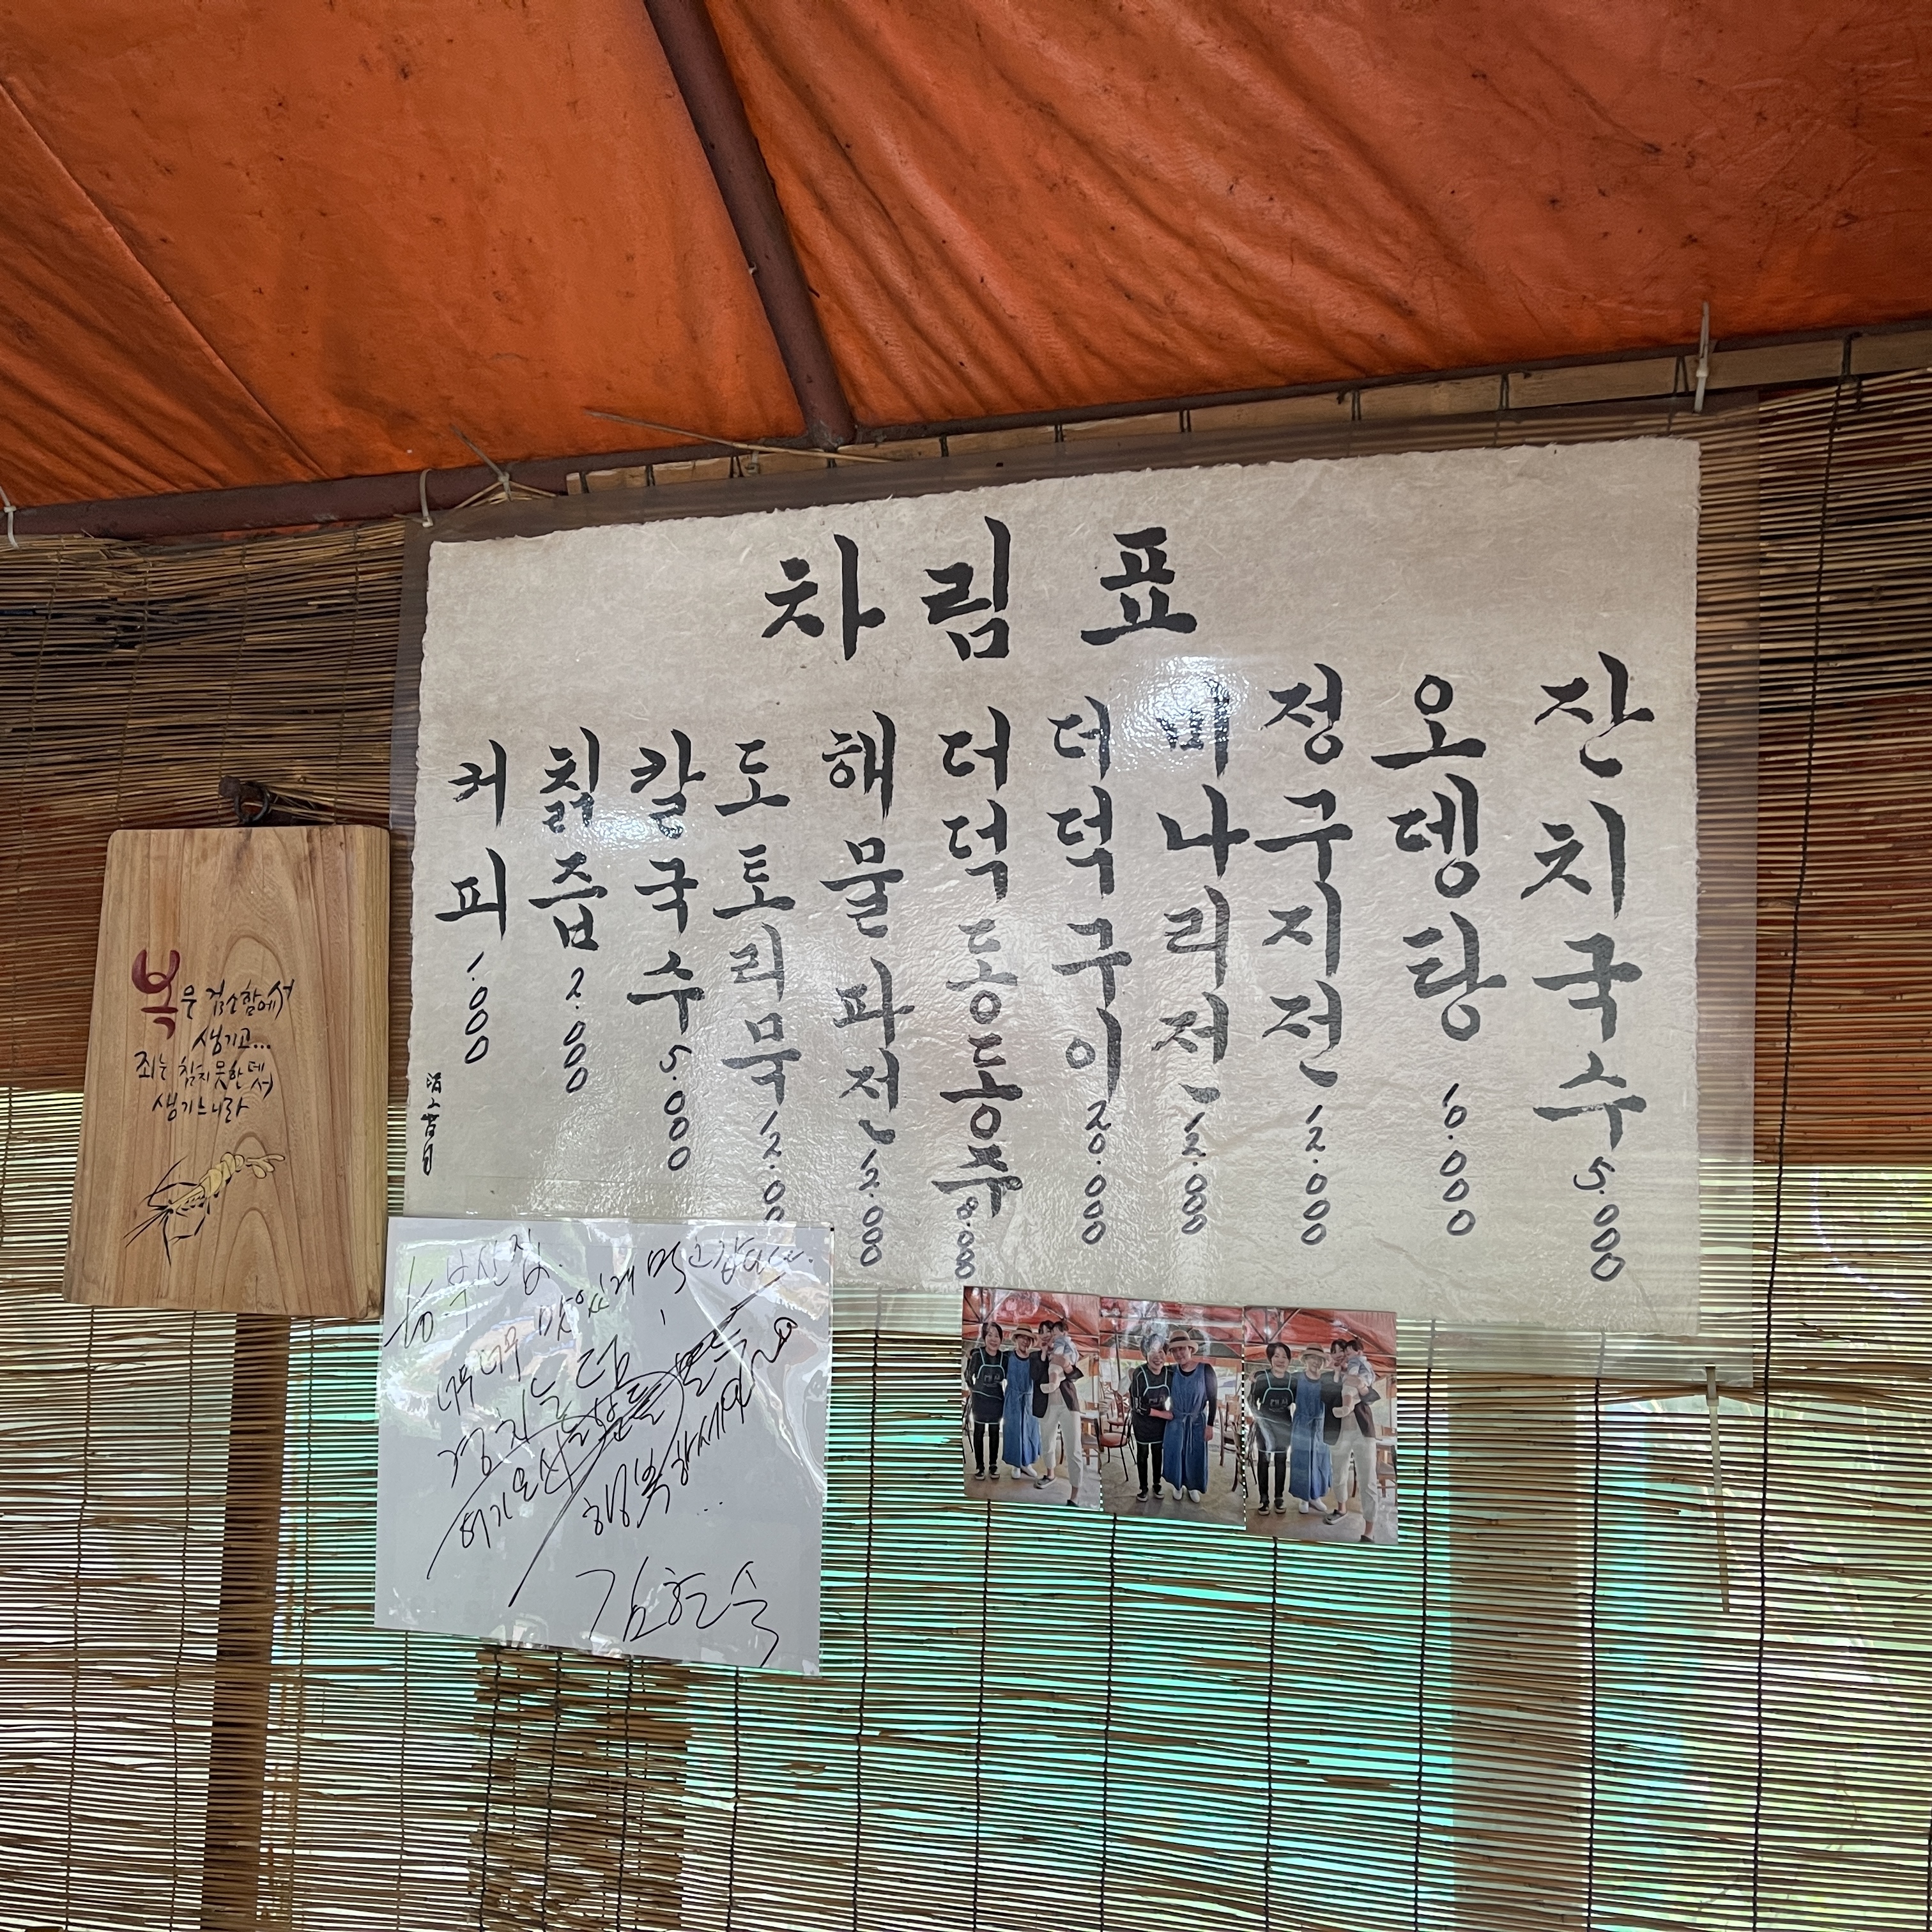 차림표
잔치국수 5.000
오뎅탕 10.000
정구지전 12.000
미나리전 12.000
더덕구이 20.000
더덕동동주 8.000
해물파전 12.000
도토리묵 12.00
칼국수 5.000
칡즙 2.000
커피 1.000
복은 검소함에서
생기고...
죄는 참지 못한데서
생기느니라
부산집.
너무너무 맛있게 먹고 갑니다.
경치는 덤
여기 오신 분들 모두들
행복하세요
김현숙